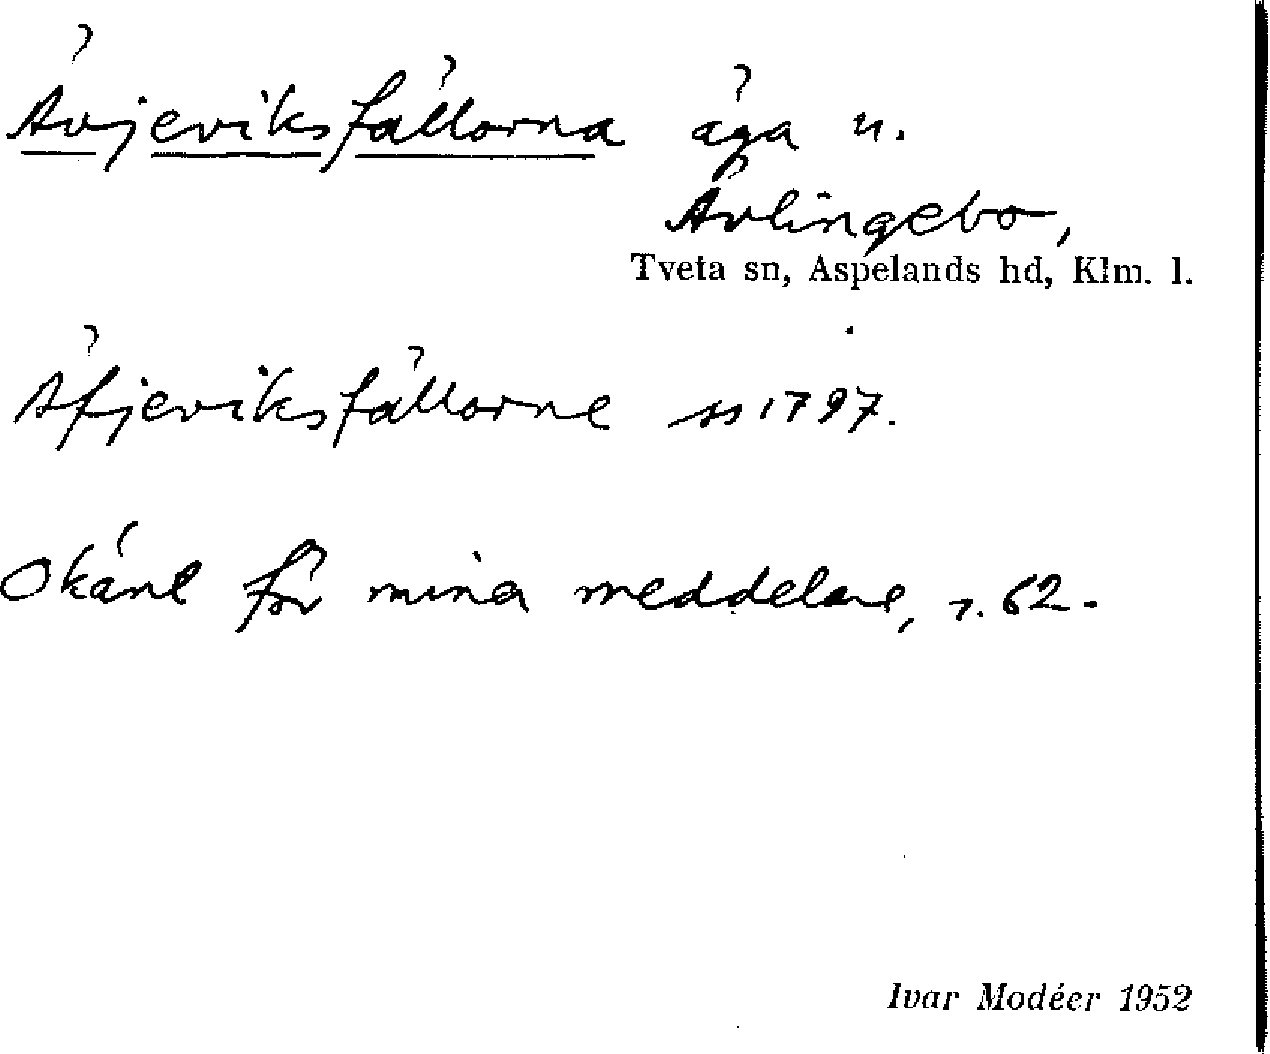 Ävjeviksfällorna äga u.
Ävlingebo,
Tveta sn, Aspelands hd, Klm. l.
Äfjeviksfällorne ss 1797.
Okänt för mina meddelare, r. 62.
Ivar Modéer 1952